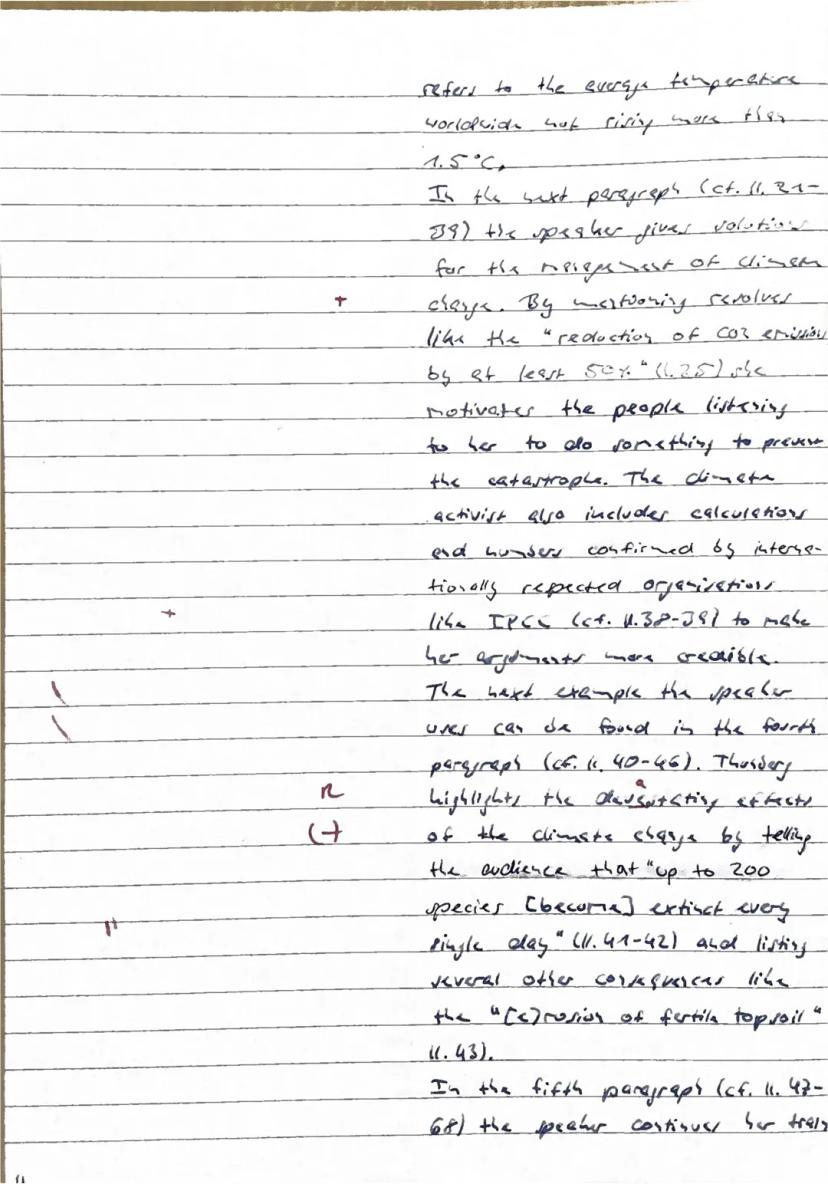 refers to the average temperature
worldwide not rising more than
1.5°C.
In the next paragraph (cf. ll. 21-
39) the speaker gives solutions
for the management of climate
+ change. By mentioning resolves
like the "reduction of CO2 emission
by at least 50%" (l. 25) she
motivates the people listening
to her to do something to prevent
the catastrophe. The climate
activist also includes calculations
and numbers confirmed by interna-
tionally respected organisations
+ like IPCC (cf. ll. 38-39) to make
her arguments more credible.
The next example the speaker
uses can be found in the fourth
paragraph (cf. ll. 40-46). Thunberg
R highlights the devastating effects
a
(-) of the climate change by telling
the audience that "up to 200
species [become] extinct every
single day" (ll. 41-42) and listing
several other consequences like
the "[e]rosion of fertile topsoil"
ll. 43).
In the fifth paragraph (cf. ll. 47-
68) the speaker continues her train